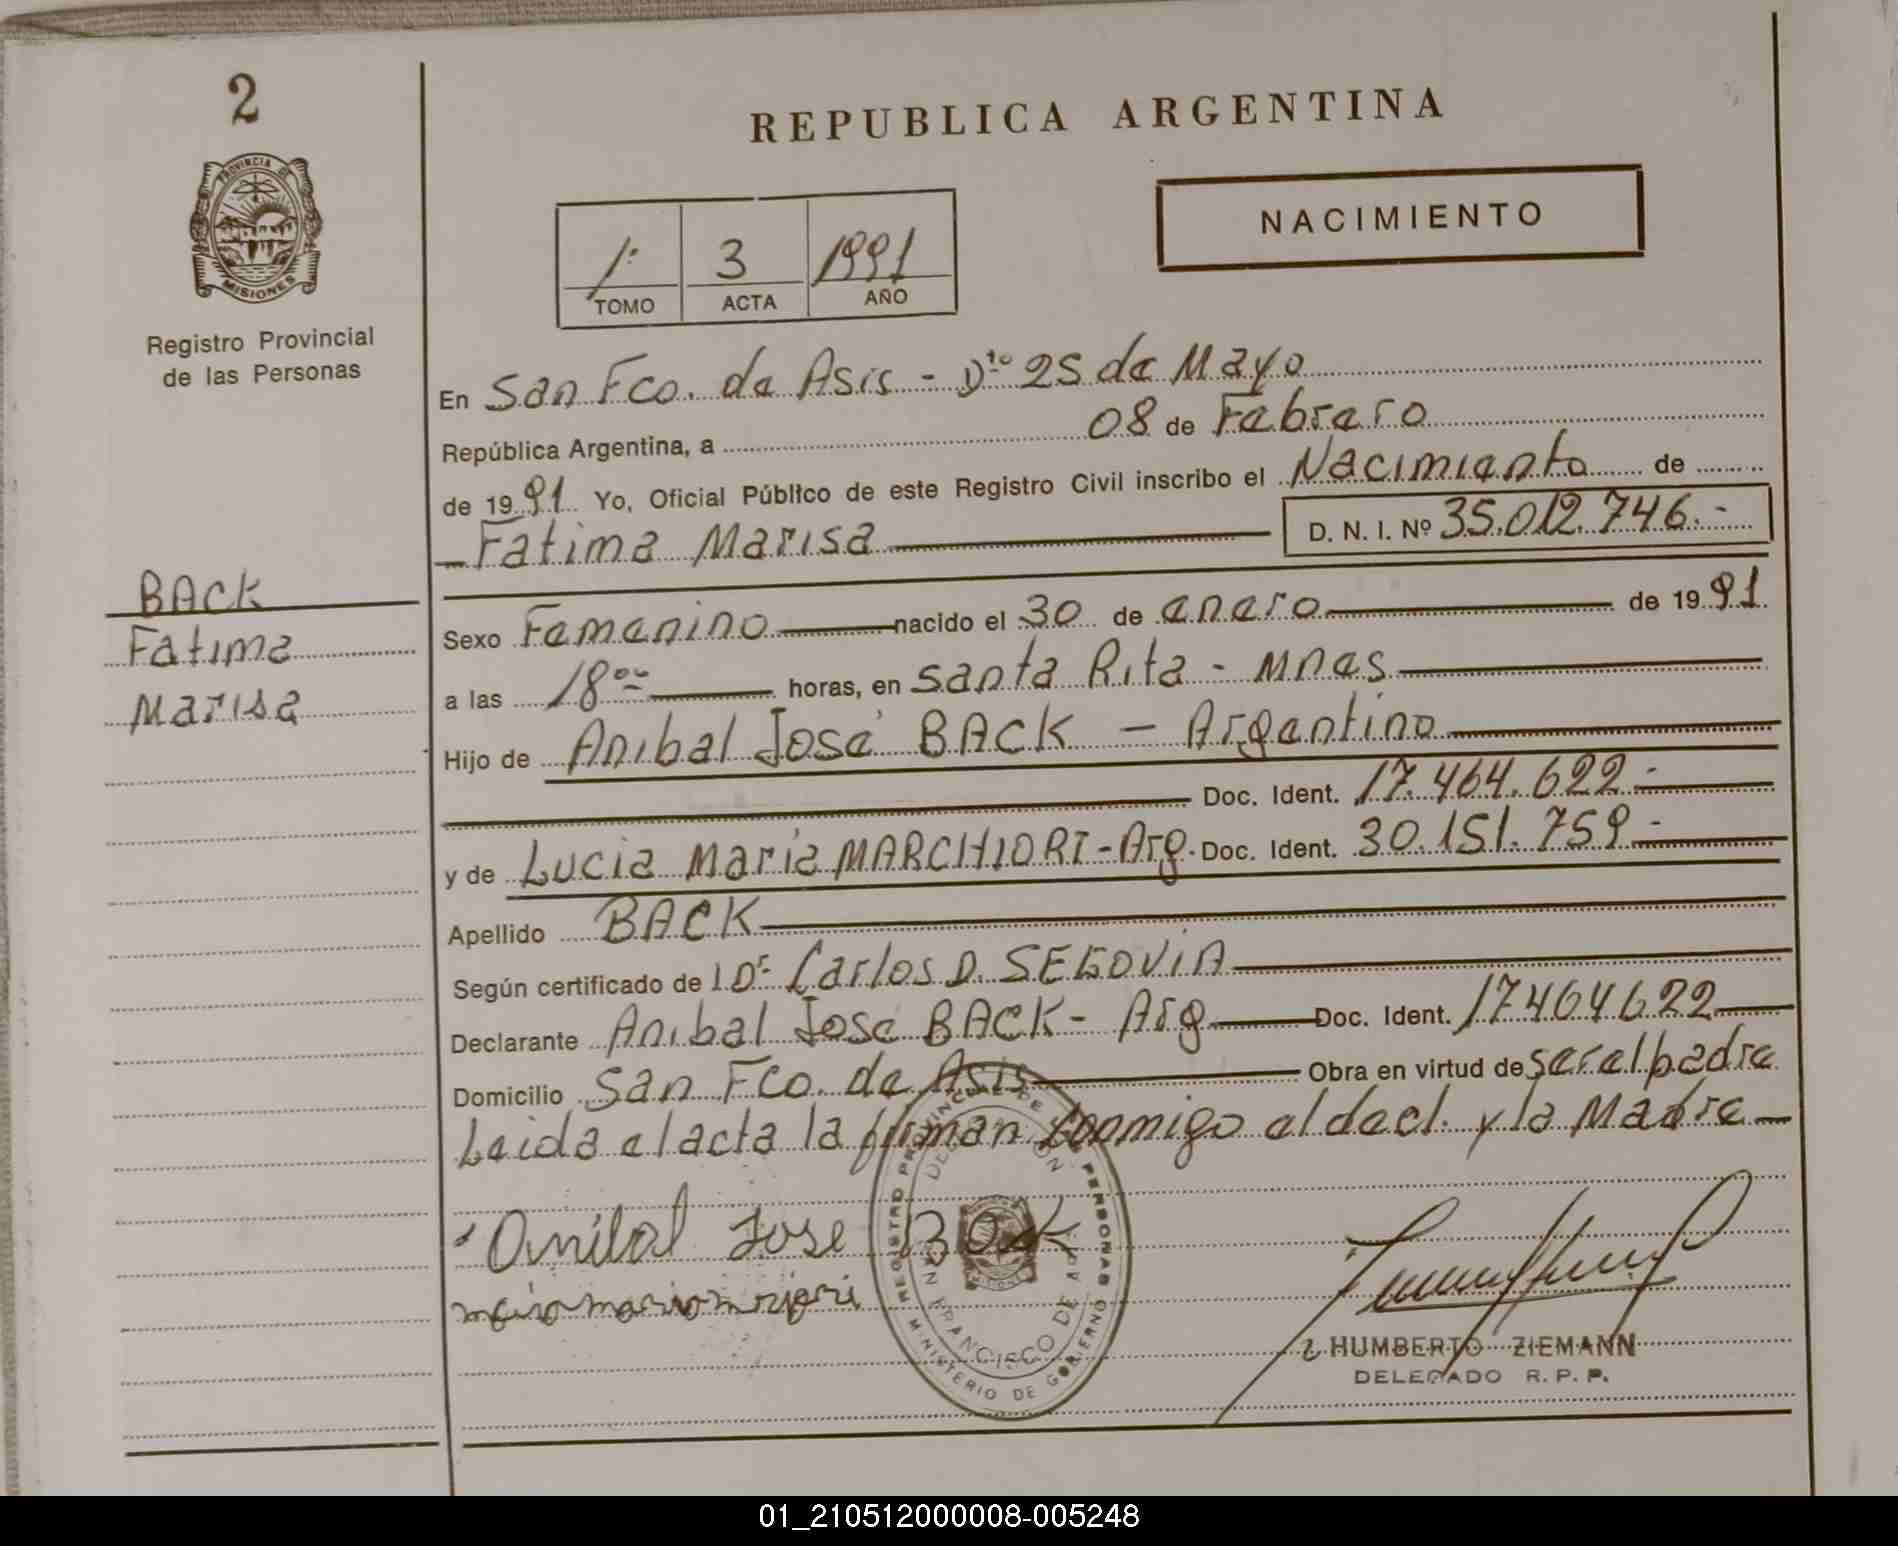 2
PROVINCIA DE
MISIONES
Registro Provincial
de las Personas
BACK
Fatima
Marisa
REPUBLICA ARGENTINA
NACIMIENTO
1º 3 1991
TOMO ACTA AÑO
En San Fco. de Asis - Dto 25 de Mayo
República Argentina, a 08 de Febrero
de 1991 Yo, Oficial Público de este Registro Civil inscribo el Nacimiento de
Fatima Marisa D. N. I. Nº 35.012.746.-
Sexo Femenino nacido el 30 de enero de 1991
a las 18 horas, en Santa Rita - Mnes
Hijo de Anibal José BACK - Argentino
Doc. Ident. 17.464.622.-
y de Lucia Maria MARCHIORI - Arg. Doc. Ident. 30.151.759.-
Apellido BACK
Según certificado de Dr. Carlos D. SEGOVIA
Declarante Anibal José BACK - Arg Doc. Ident. 17464622
Domicilio San Fco. de Asis Obra en virtud de ser el padre
Leida el acta la firman conmigo el decl. y la Madre
Anibal Jose Back
REGISTRO PROVINCIAL DE LAS PERSONAS
MINISTERIO DE GOBIERNO
SAN FRANCISCO DE ASIS
HUMBERTO ZIEMANN
DELEGADO R. P. P.
01_210512000008-005248